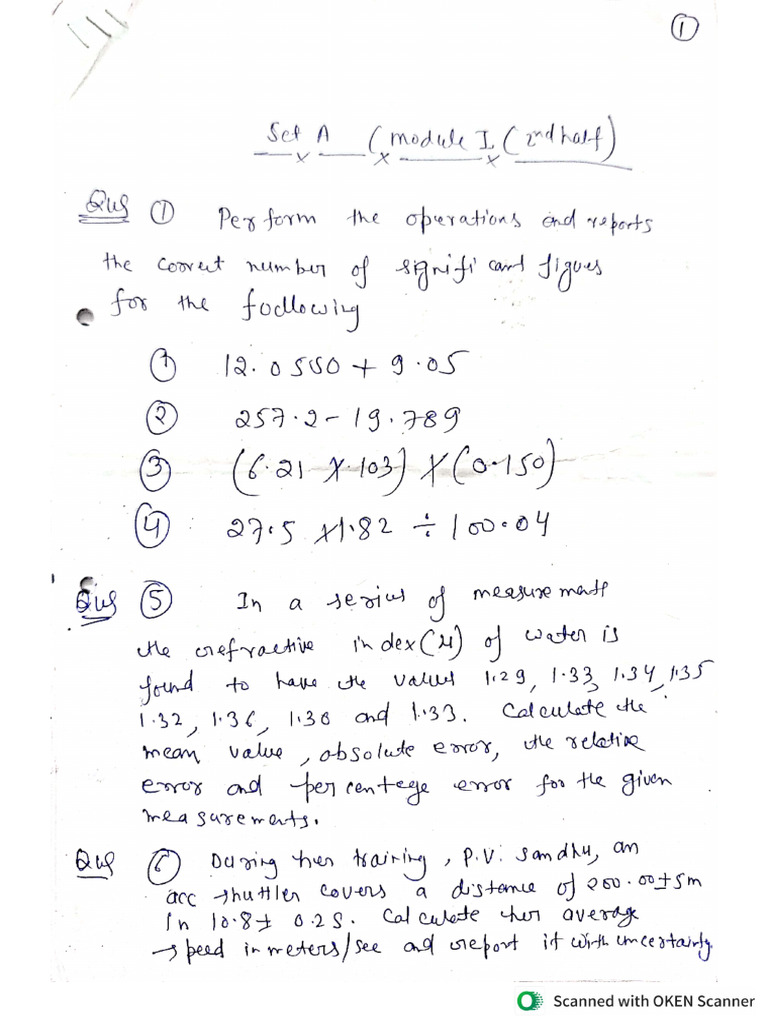 1
Set A (module I (2nd half)
Qus 1 Perform the operations and reports
the correct number of significant figues
for the fodlowing
1 12.0550 + 9.05
2 257.2 - 19.789
3 (6.21 × 103) × (0.150)
4 27.5 × 1.82 ÷ 100.04
Qus 5 In a series of measurements
the refractive index (μ) of water is
found to have the values 1.29, 1.33, 1.34, 1.35
1.32, 1.36, 1.30 and 1.33. Calculate the
mean value, absolute error, the relative
error and percentege error for the given
measurements.
Qus 6 During her training, P.V. Sandhu, an
acc shuttler covers a distance of 200.00 ± 5m
in 10.8 ± 0.2S. Calculate her average
speed in meters/sec and report it with uncertainly
Scanned with OKEN Scanner